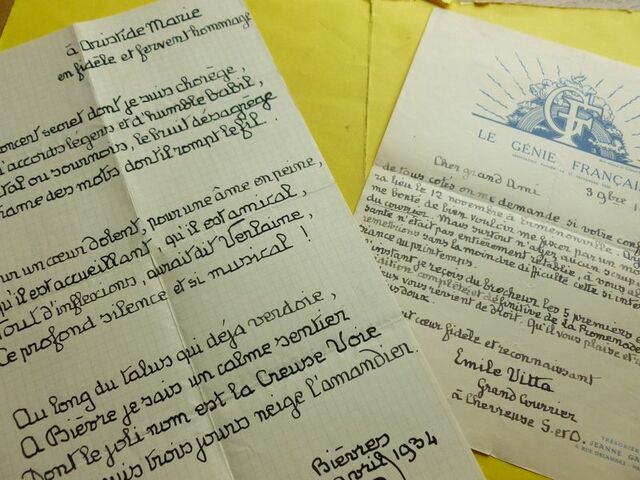 à Aristide Marie
en fidèle et fervent hommage
concert secret dont je suis chorège,
d'accords légers et d'humble babil,
ou sournois, le bruit désagrège
trame des mots dont il rompt le fil.
un cœur dolent, pour une âme en peine,
qu'il est accueillant, qu'il est amical,
Tout d'inflexions, aurait dit Verlaine,
Ce profond silence et si musical !
Au long du talus qui déjà verdoie,
A Bièvre je sais un calme sentier
Dont le joli nom est la Creuse Voie
trois jours neige l'amandier.
Bièvres
avril 1934
GF
LE GÉNIE FRANÇAI
Cher grand Ami
3 9bre 1
de tous côtés on me demande si votre con
ra lieu le 12 novembre à
me bonté de bien vouloir me fixer par un m
du courrier. Mais surtout n'ayez aucun scrup
santé n'était pas entièrement rétablie, à vous al
remettrions sans la moindre difficulté cette si inter
au printemps
instant je reçois du brocheur les 5 premiers e
édition complète et définitive de la Promenade
vous revient de droit. qu'il vous plaise et
doux.
cœur fidèle et reconnaissant
Emile Vitta
Grand Courrier
à Chevreuse S. et O.
TRÉSORIER
JEANNE GA
RUE DELAMBRE